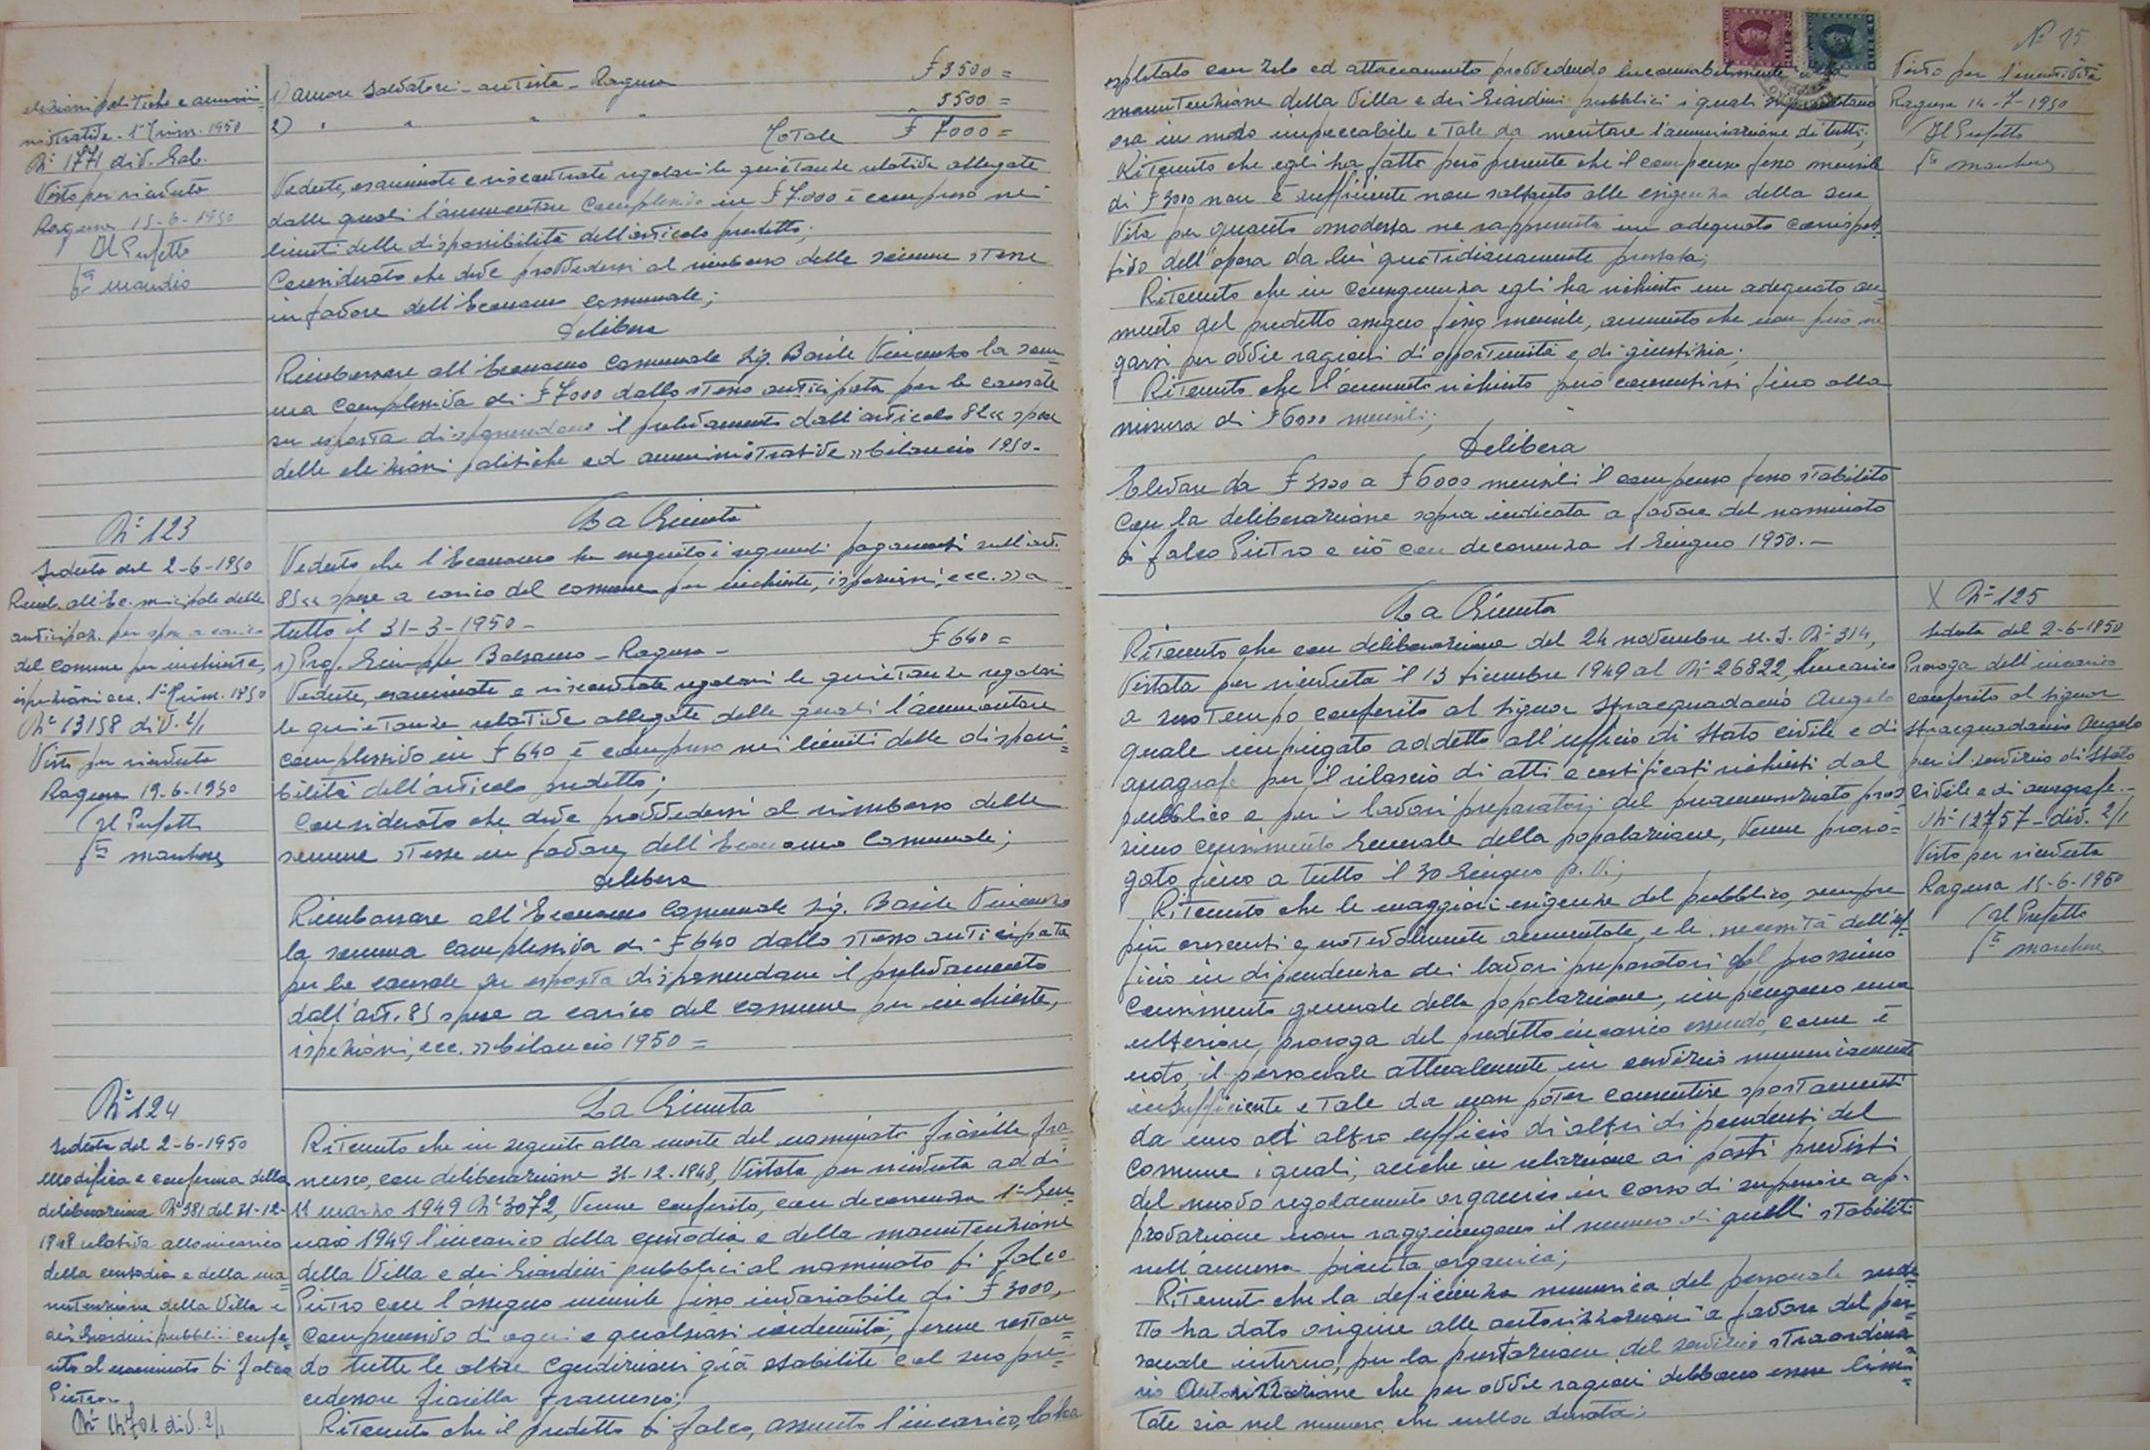 elezioni politiche e ammi=
nistrative - 1° Trim. 1950
N° 1771 div. Gab.
Visto per ricevuta
Ragusa 15-6-1950
Il Prefetto
1) Amore Salvatore - autista - Ragusa £ 3500 =
2) " " " " 3500 =
Totale £ 7000 =
Vedute, esaminate e riscontrate regolari le quietanze relative allegate
dalle quali l'ammontare complessivo in £ 7000 è compreso nei
limiti delle disponibilità dell'articolo predetto;
Considerato che deve provvedersi al rimborso delle somme stesse
in favore dell'Economo Comunale;
Delibera
Rimborsare all'Economo Comunale Sig. Basile Vincenzo la som=
ma complessiva di £ 7000 dallo stesso anticipata per le causale
su esposta disponendone il prelevamento dall'articolo 82 << spese
delle elezioni politiche ed amministrative >> bilancio 1950.
N° 123
Seduta del 2-6-1950
Rimb. all'Ec. municipale delle
anticipaz. per spese a carico
del Comune per inchieste,
ispezioni ecc. 1° Trim. 1950
N° 13158 div. 2/1
Visto per ricevuta
Ragusa 19-6-1950
Il Prefetto
La Giunta
Veduto che l'Economo ha eseguito i seguenti pagamenti sull'art.
85 << spese a carico del comune per inchieste, ispezioni, ecc. >> a
tutto il 31-3-1950 -
1) Prof. Giuseppe Balsamo - Ragusa - £ 640 =
Vedute, esaminate e riscontrate regolari le quietanze regolari
le quietanze relative allegate dalle quali l'ammontare
complessivo in £ 640 è compreso nei limiti delle disponi=
bilità dell'articolo predetto;
Considerato che deve provvedersi al rimborso delle
somme stesse in favore dell'Economo Comunale;
Delibera
Rimborsare all'Economo Comunale Sig. Basile Vincenzo
la somma complessiva di £ 640 dallo stesso anticipata
per le causale su esposta disponendone il prelevamento
dall'art. 85 spese a carico del comune per inchieste,
ispezioni, ecc. >> bilancio 1950 =
N° 124
Seduta del 2-6-1950
Modifica e conferma della
deliberazione N° 381 del 31-12-
1948 relativa all'incarico
della custodia e della ma=
nutenzione della Villa e
dei Giardini pubblici confe=
rito al nominato Di Falco
Pietro.
N° 14701 div. 2/1
La Giunta
Ritenuto che in seguito alla morte del nominato Fiorilla Fra=
ncesco, con deliberazione 31-12-1948, Vistata per ricevuta addì
11 marzo 1949 N° 3072, Venne conferito, con decorrenza 1° Gen=
naio 1949 l'incarico della custodia e della manutenzione
della Villa e dei Giardini pubblici al nominato Di Falco
Pietro con l'assegno mensile fisso invariabile di £ 3000,
comprensivo di ogni e qualsiasi indennità, ferme restan=
do tutte le altre condizioni già stabilite col suo pre=
cedessore Fiorilla Francesco;
Ritenuto che il predetto Di Falco, assunto l'incarico, lo ha
N° 75
espletato con zelo ed attaccamento provvedendo encomiabilmente alla
manutenzione della Villa e dei Giardini pubblici i quali si presentano
ora in modo impeccabile e tale da meritare l'ammirazione di tutti;
Ritenuto che egli ha fatto però presente che il compenso fisso mensile
di £ 3000 non è sufficiente non soltanto alle esigenze della sua
Vita per quanto modesta ne rappresenta un adeguato corrispet=
tivo dell'opera da lui quotidianamente prestata;
Ritenuto che in conseguenza egli ha richiesto un adeguato au=
mento del predetto assegno fisso mensile, aumento che non può ne=
garsi per ovvie ragioni di opportunità e di giustizia;
Ritenuto che l'aumento richiesto può consentirsi fino alla
misura di £ 6000 mensili;
Delibera
Elevare da £ 3000 a £ 6000 mensili il compenso fisso stabilito
con la deliberazione sopra indicata a favore del nominato
Di Falco Pietro e ciò con decorrenza 1 Giugno 1950. -
Visto per l'esecutività
Ragusa 14-7-1950
Il Prefetto
La Giunta
Ritenuto che con deliberazione del 24 novembre u.s. N° 314,
Vistata per ricevuta il 13 dicembre 1949 al N° 26822, l'incarico
a suo tempo conferito al signor Stracquadanio Angelo
quale impiegato addetto all'ufficio di Stato civile e di
anagrafe per il rilascio di atti e certificati richiesti dal
pubblico e per i lavori preparatori del preannunziato pros=
simo censimento Generale della popolazione, Venne proro=
gato fino a tutto il 30 Giugno p.v.;
Ritenuto che le maggiori esigenze del pubblico, sempre
più crescenti e notevolmente aumentate, e le necessità dell'uf=
ficio in dipendenza dei lavori preparatori del prossimo
Censimento generale della popolazione, impongono una
ulteriore proroga del predetto incarico essendo, come è
noto, il personale attualmente in servizio numericamente
insufficiente e tale da non poter consentire spostamenti
da uno ad altro ufficio di altri dipendenti del
Comune i quali, anche in relazione ai posti previsti
del nuovo regolamento organico in corso di superiore ap=
provazione non raggiungono il numero di quelli stabiliti
nell'annessa pianta organica;
Ritenuto che la deficienza numerica del personale sud=
etto ha dato origine alle autorizzazioni a favore del per=
sonale interno, per la prestazione del servizio straordina=
rio Autorizzazione che per ovvie ragioni debbono essere limi=
tate sia nel numero che nella durata;
X N° 125
Seduta del 2-6-1950
Proroga dell'incarico
conferito al signor
Stracquadanio Angelo
per il servizio di Stato
civile e di anagrafe. -
N° 12757 - div. 2/1
Visto per ricevuta
Ragusa 15-6-1950
Il Prefetto